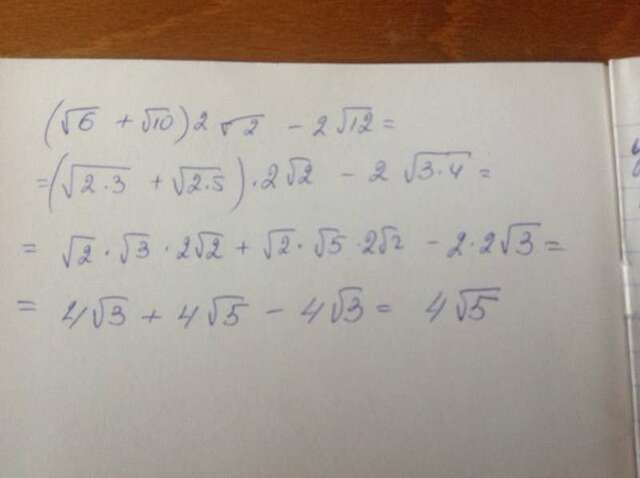 (√6 + √10) 2 √2 - 2 √12 =
= (√2·3 + √2·5) · 2√2 - 2 √3·4 =
= √2 · √3 · 2√2 + √2 · √5 · 2√2 - 2·2√3 =
= 4√3 + 4√5 - 4√3 = 4√5